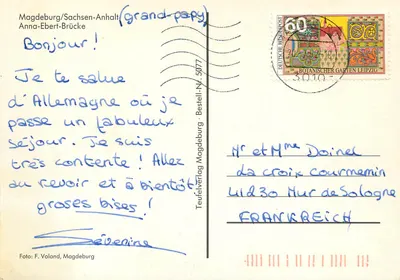 Magdeburg/Sachsen-Anhalt
Anna-Ebert-Brücke
(grand-papy)
Bonjour!
Je te salue
d'Allemagne où je
passe un fabuleux
séjour. Je suis
très contente! Allez
au revoir et à bientôt
groses bises!
Séverine
Foto: F. Voland, Magdeburg
Teufelverlag Magdeburg · Bestell-Nr. 5077
60
DEUTSCHE BUNDESPOST
BOTANISCHER GARTEN LEIPZIG
Mr et Mme Doinel
La croix Courmemin
41230 Mur de Sologne
FRANKREICH